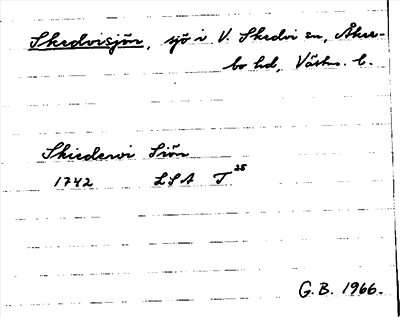 Skedvisjön, sjö i V. Skedvi sn, Åker-
bo hd, Västm. l.
Skiedewi Siön
1742 LSA T 25
G.B. 1966.